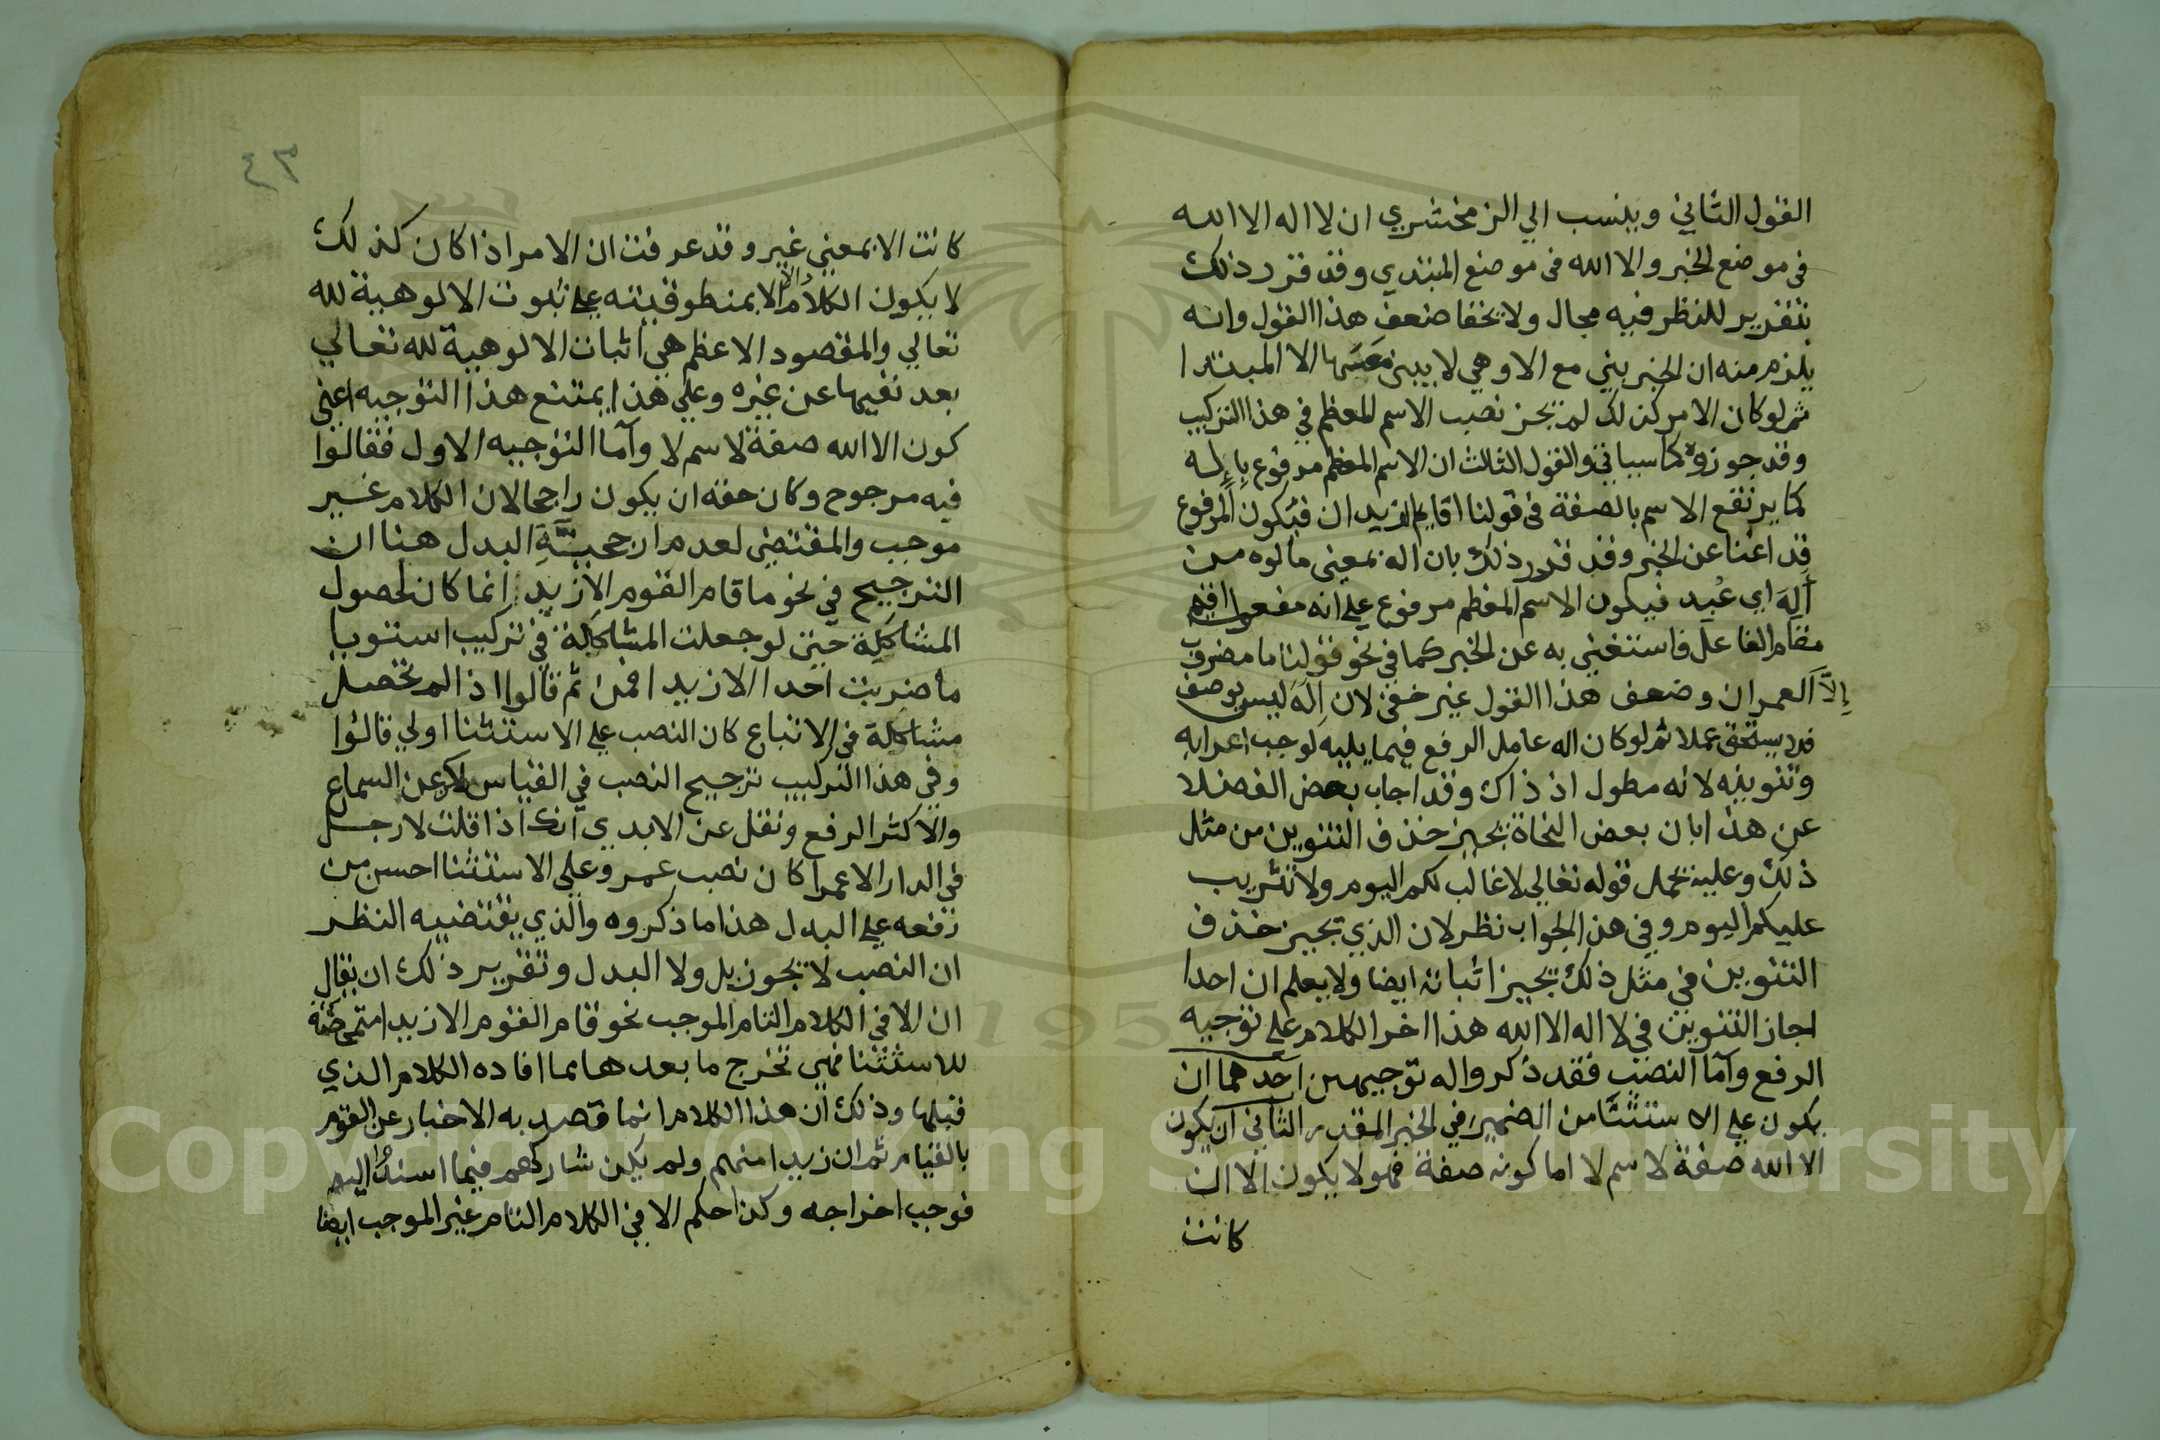 القول الثاني وينسب الي الزمخشري ان لا اله الا الله
في موضع الخبر والا الله في موضع المبتدي وقد قرر ذلك
بتقرير للنظر فيه مجال ولا يخفا ضعف هذا القول وانه
يلزم منه ان الخبر يبني مع الا وهي لا يبنى معها الا المبتدا
ثم لو كان الامر كذلك لم يجز نصب الاسم المعظم في هذا التركيب
وقد جوزوه كما سياتي والقول الثالث ان الاسم المعظم مرفوع بإله
كما يرتفع الاسم بالصفة في قولنا اقايم الزيدان فيكون المرفوع
قد اغنا عن الخبر وقد قرر ذلك بان اله بمعني مالوه من
أله اي عُبد فيكون الاسم المعظم مرفوع علي انه مفعول اقيم
مقام الفاعل فاستغني به عن الخبر كما في نحو قولنا ما مضروب
إلاَّ العمران وضعف هذا القول غير خفي لان إله ليس بوصف
فلا يستحق عملا ثم لو كان اله عامل الرفع فيما يليه لوجب اعرابه
وتنوينه لانه مطول اذ ذاك وقد اجاب بعض الفضلا
عن هذا بان بعض النحاة يجيز حذف التنوين من مثل
ذلك وعليه يحمل قوله تعالي لا غالب لكم اليوم ولا تثريب
عليكم اليوم وفي هذا الجواب نظر لان الذي يجيز حذف
التنوين في مثل ذلك يجيز اثباته ايضا ولا يعلم ان احدا
اجاز التنوين في لا اله الا الله هذا اخر الكلام علي توجيه
الرفع وآما النصب فقد ذكروا له توجيهين احدهما ان
يكون علي الاستثنا من الضمير في الخبر المقدر الثاني ان يكون
الا الله صفة لاسم لا اما كونه صفة فهو لا يكون الا ان
كانت
٤٣
كانت الا بمعني غير وقد عرفت ان الامر اذا كان كذلك
لا يكون الكلام دالا بمنطوقيته علي ثبوت الالوهية لله
تعالي والمقصود الاعظم هي اثبات الالوهية لله تعالي
بعد نفيها عن غيره وعلي هذا يمتنع هذا التوجيه اعني
كون الا الله صفة لاسم لا وآما التوجيه الاول فقالوا
فيه مرجوح وكان حقه ان يكون راجحا لان الكلام غير
موجب والمقتضي لعدم ارجحيَّةِ البدل هنا ان
الترجيح في نحو ما قام القوم الا زيد انما كان لحصول
المشاكلة حتي لو جعلت المشاكلة في تركيب استويا
ما ضربت احدا الا زيدا فمن ثم قالوا اذا لم تحصل
مشاكلة في الاتباع كان النصب علي الاستثنا اولي قالوا
وفي هذا التركيب ترجيح النصب في القياس لاكن السماع
والاكثر الرفع ونقل عن الابدي انك اذا قلت لا رجل
في الدار الا عمرا كان نصب عمرو علي الاستثنا احسن من
رفعه علي البدل هذا ما ذكروه والذي يقتضيه النظر
ان النصب لا يجوز بل ولا البدل وتقرير ذلك ان يقال
ان الا في الكلام التام الموجب نحو قام القوم الا زيدا متمحضة
للاستثنا فهي تخرج ما بعدها مما افاده الكلام الذي
قبلها وذلك ان هذا الكلام انما قصد به الاخبار عن القوم
بالقيام ثم ان زيدا منهم ولم يكن شاركهم فيما اسند اليهم
فوجب اخراجه وكذا حكم الا في الكلام التام غير الموجب ايضا
Copyright © King Saud University
1957